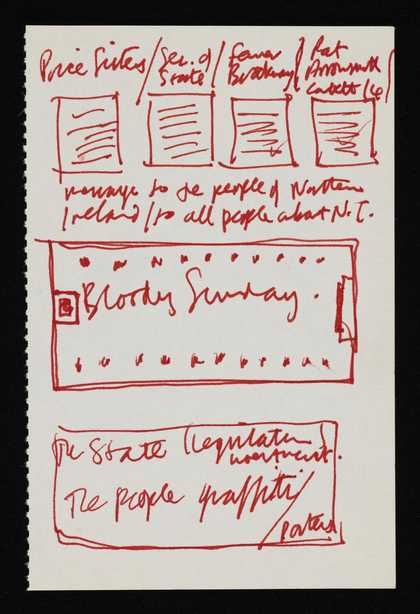 Price Sisters / Sec. of State / Fenner Brockway / Pat Arrowsmith
message to the people of Northern
Ireland / to all people about N.I.
Bloody Sunday.
The State (legislation)
The people graffiti /
posters